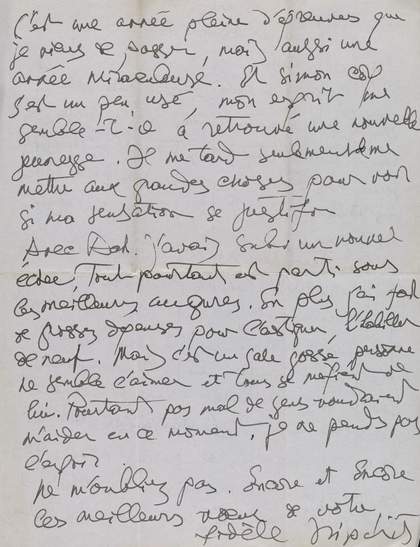 C'est une année pleine d'épreuves que
je viens de passer, mais aussi une
année miraculeuse. Et si mon
s'est un peu usé, mon esprit me
semble-t-il a retrouvé une nouvelle
jeunesse. Il me tarde seulement de me
mettre aux grandes choses pour voir
si ma sensation se justifie
Avec j'avais subi un nouvel
échec, tout pourtant est parti sous
les meilleurs augures. En plus j'ai fait
de grosses dépenses pour l'
de neuf. Mais c'est un sale gosse, personne
ne semble l'aimer et tous se méfient de
lui. Pourtant pas mal de gens voudraient
m'aider en ce moment, je ne perds pas
l'espoir.
Ne m'oubliez pas. Encore et Encore
les meilleurs vœux de votre
fidèle Lipchitz